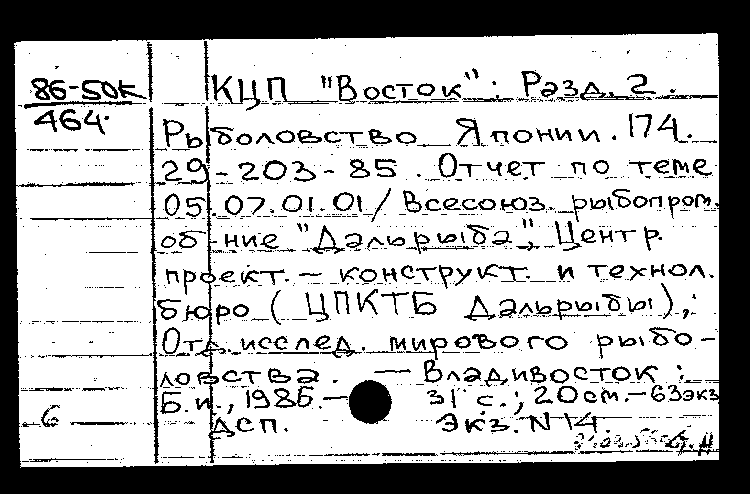 86-50к
464.
КЦП "Восток": Разд. 2.
Рыболовство Японии. 174.
29-203-85. Отчет по теме
05.07.01.01/ Всесоюз. рыбопром.
об-ние "Дальрыба", Центр.
проект.-конструкт. и технол.
бюро (ЦПКТБ Дальрыбы),
Отд. исслед. мирового рыбо-
ловства. — Владивосток:
Б.и., 1986.— 31 с.; 20 см.— 63экз
ДСП. Экз. N 14
6